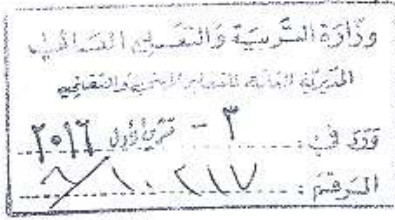 وزارة التربية والتعليم العالي
المديرية العامة للتعليم المهني والتقني
ورد في: ٣ - تشرين أول ٢٠١٦
الرقم: